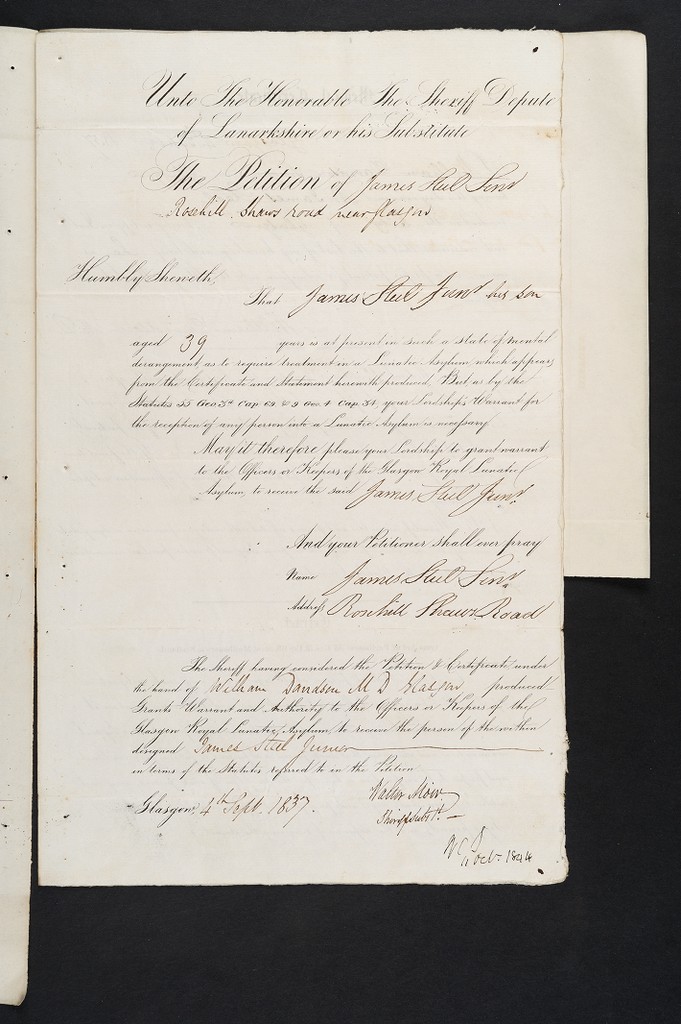 Unto The Honorable The Sheriff Depute
of Lanarkshire or his Substitute
The Petition of James Steel Senr
Rosehill Shaws road near Glasgow
Humbly Sheweth,
That James Steel Junr his son
aged 39 years is at present in such a state of mental
derangement, as to require treatment in a Lunatic Asylum, which appears
from the Certificate and Statement herewith produced, But as by the
Statutes 55 Geo. 3d Cap. 69 & 9 Geo. 4 Cap. 34, your Lordship's Warrant for
the reception of any person into a Lunatic Asylum is necessary
May it therefore please your Lordship to grant warrant
to the Officers or Keepers of the Glasgow Royal Lunatic
Asylum, to receive the said James Steel Junr.
And your Petitioner shall ever pray
Name James Steel Senr.
Address Rosehill Shaws Road
The Sheriff having considered the Petition & Certificate under
the hand of William Davidson M D Glasgow produced
Grants Warrant and Authority to the Officers or Keepers of the
Glasgow Royal Lunatic Asylum, to receive the person of the within
designed James Steel Junior
in terms of the Statutes referred to in the Petition
Glasgow, 4th Sept. 1837.
Walter Moir
Sheriff Subst.
11 Octr. 1844